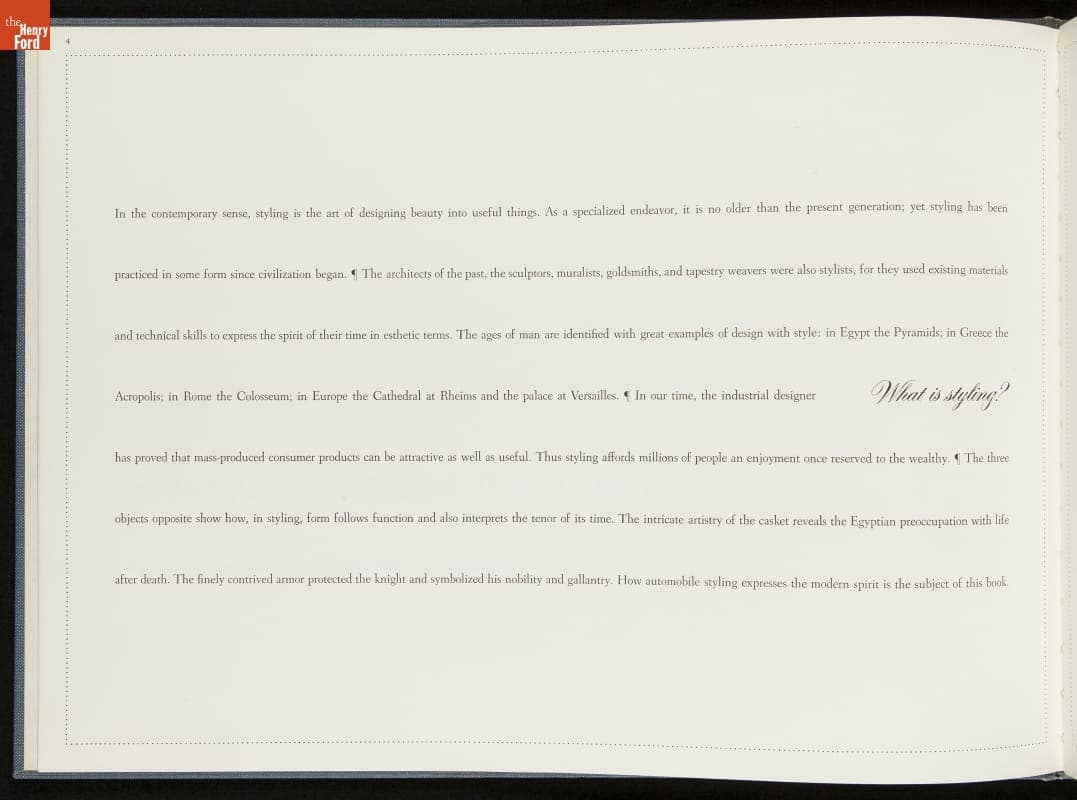 the
Henry
Ford
4
In the contemporary sense, styling is the art of designing beauty into useful things. As a specialized endeavor, it is no older than the present generation; yet styling has been
practiced in some form since civilization began. ¶ The architects of the past, the sculptors, muralists, goldsmiths, and tapestry weavers were also stylists, for they used existing materials
and technical skills to express the spirit of their time in esthetic terms. The ages of man are identified with great examples of design with style: in Egypt the Pyramids; in Greece the
Acropolis; in Rome the Colosseum; in Europe the Cathedral at Rheims and the palace at Versailles. ¶ In our time, the industrial designer
What is styling?
has proved that mass-produced consumer products can be attractive as well as useful. Thus styling affords millions of people an enjoyment once reserved to the wealthy. ¶ The three
objects opposite show how, in styling, form follows function and also interprets the tenor of its time. The intricate artistry of the casket reveals the Egyptian preoccupation with life
after death. The finely contrived armor protected the knight and symbolized his nobility and gallantry. How automobile styling expresses the modern spirit is the subject of this book.